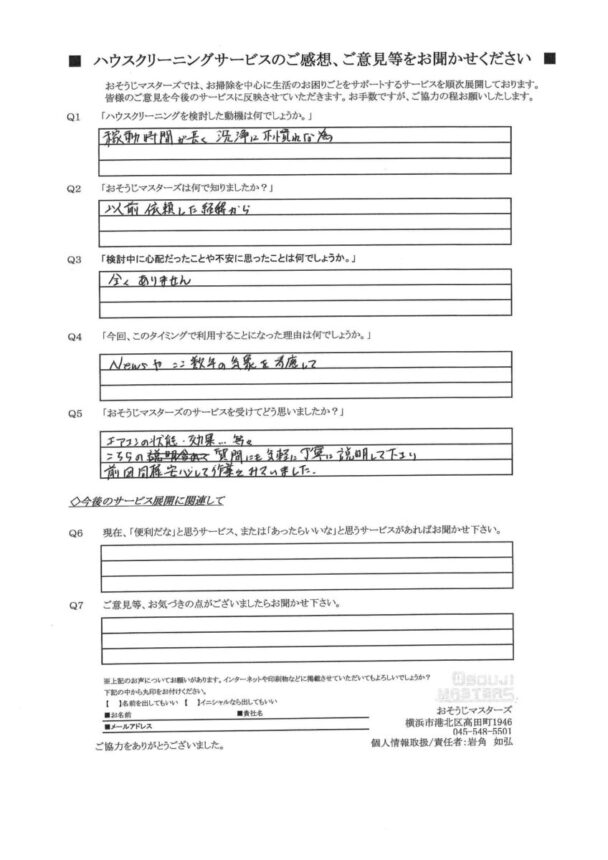 ■ ハウスクリーニングサービスのご感想、ご意見等をお聞かせください ■
おそうじマスターズでは、お掃除を中心に生活のお困りごとをサポートするサービスを順次展開しております。
皆様のご意見を今後のサービスに反映させていただきます。お手数ですが、ご協力の程お願いしたします。
Q1 「ハウスクリーニングを検討した動機は何でしょうか。」
稼動時間が長く 洗浄に不慣れな為
Q2 「おそうじマスターズは何で知りましたか？」
以前 依頼した経緯から
Q3 「検討中に心配だったことや不安に思ったことは何でしょうか。」
全く ありません
Q4 「今回、このタイミングで利用することになった理由は何でしょうか。」
Newsや ここ数年の気象を考慮して
Q5 「おそうじマスターズのサービスを受けてどう思いましたか？」
エアコンの状態・効果… 等々
こちらの 質問にも気軽に丁寧に説明して下さり
前回同様安心して作業をみていました.
◇今後のサービス展開に関連して
Q6 現在、「便利だな」と思うサービス、または「あったらいいな」と思うサービスがあればお聞かせ下さい。
Q7 ご意見等、お気づきの点がございましたらお聞かせ下さい。
※上記のお声についてお願いがあります。インターネットや印刷物などに掲載させていただいてもよろしいでしょうか？
下記の中から丸印をお付けください。
【 】名前を出してもいい 【 】イニシャルなら出してもいい
■お名前 ■貴社名
■メールアドレス
ご協力をありがとうございました。
おそうじマスターズ
横浜市港北区高田町1946
045-548-5501
個人情報取扱/責任者:岩角 如弘